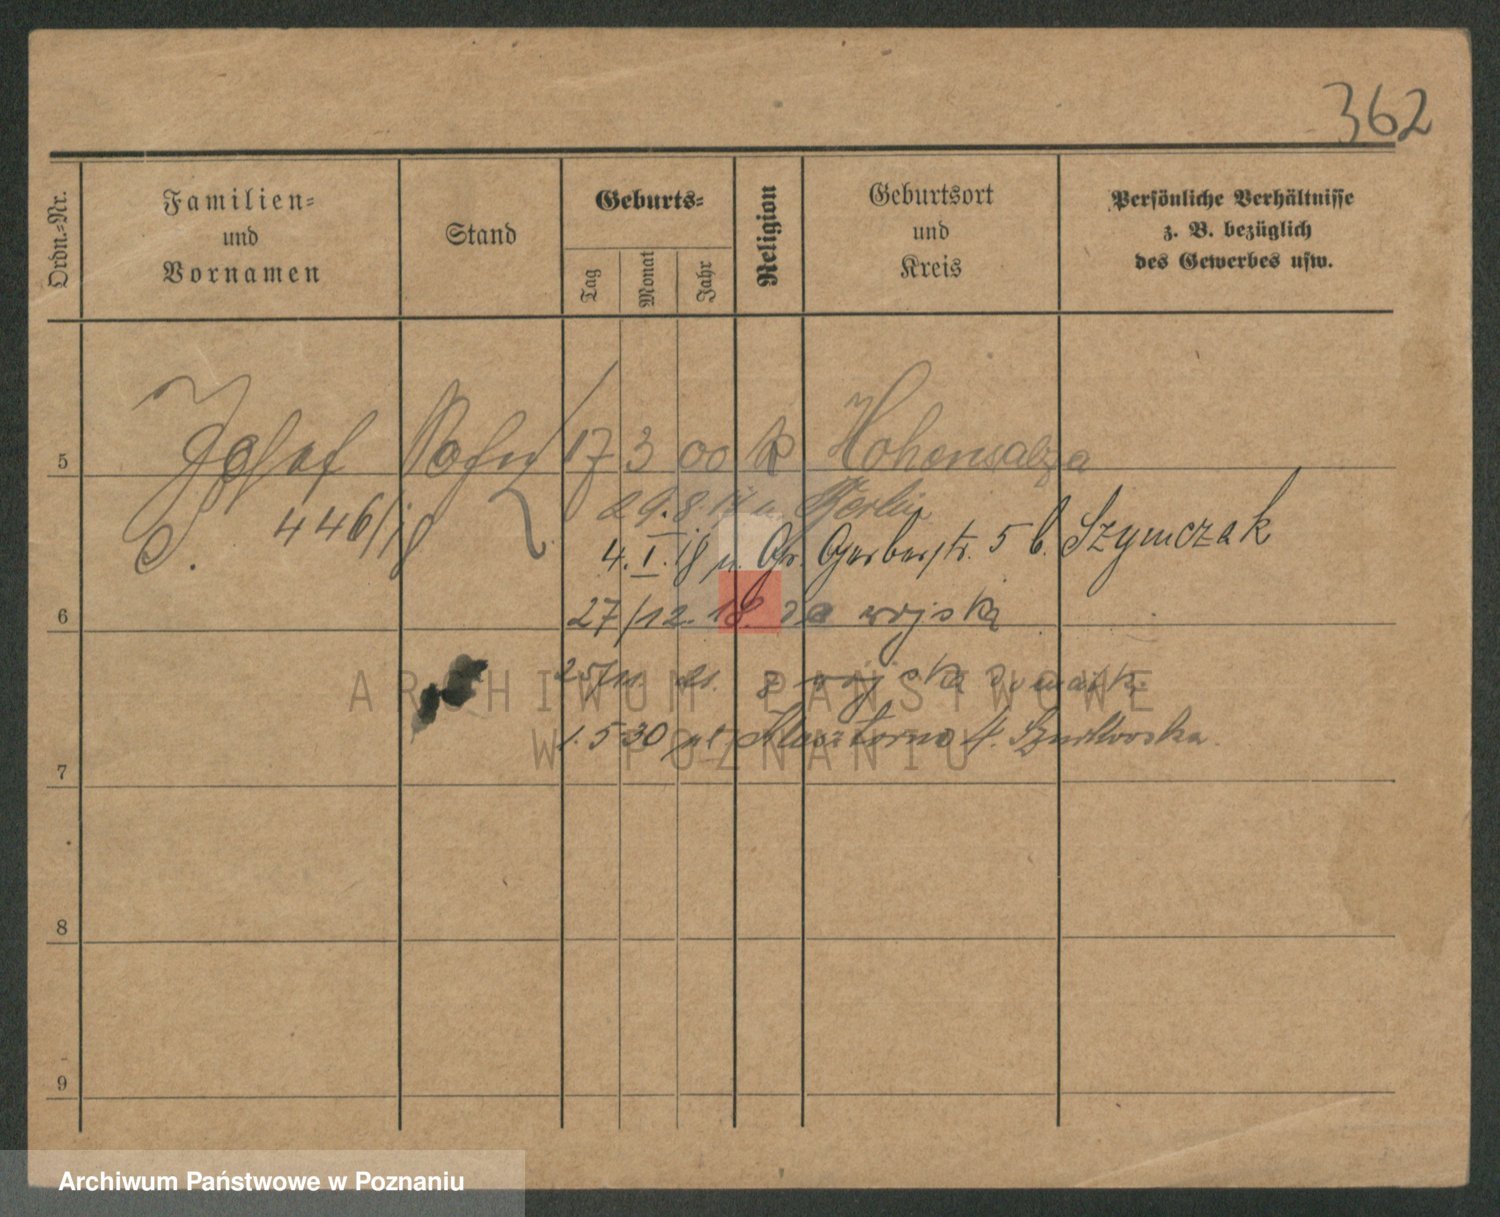 362
Ordn.-Nr.
Familien-
und
Vornamen
Stand
Geburts-
Tag
Monat
Jahr
Religion
Geburtsort
und
Kreis
Persönliche Verhältnisse
z. B. bezüglich
des Gewerbes usw.
5 Josef Sohn 17 3 00 k Hohensalza
446/18 29.8. Berlin
4. I. 18 Gr. Gerberstr. 5 b. Szymczak
6 27/12. 18. do wojska
25/11. 21. z wojska
1. 5 30
7
8
9
ARCHIWUM PAŃSTWOWE
W POZNANIU
Archiwum Państwowe w Poznaniu